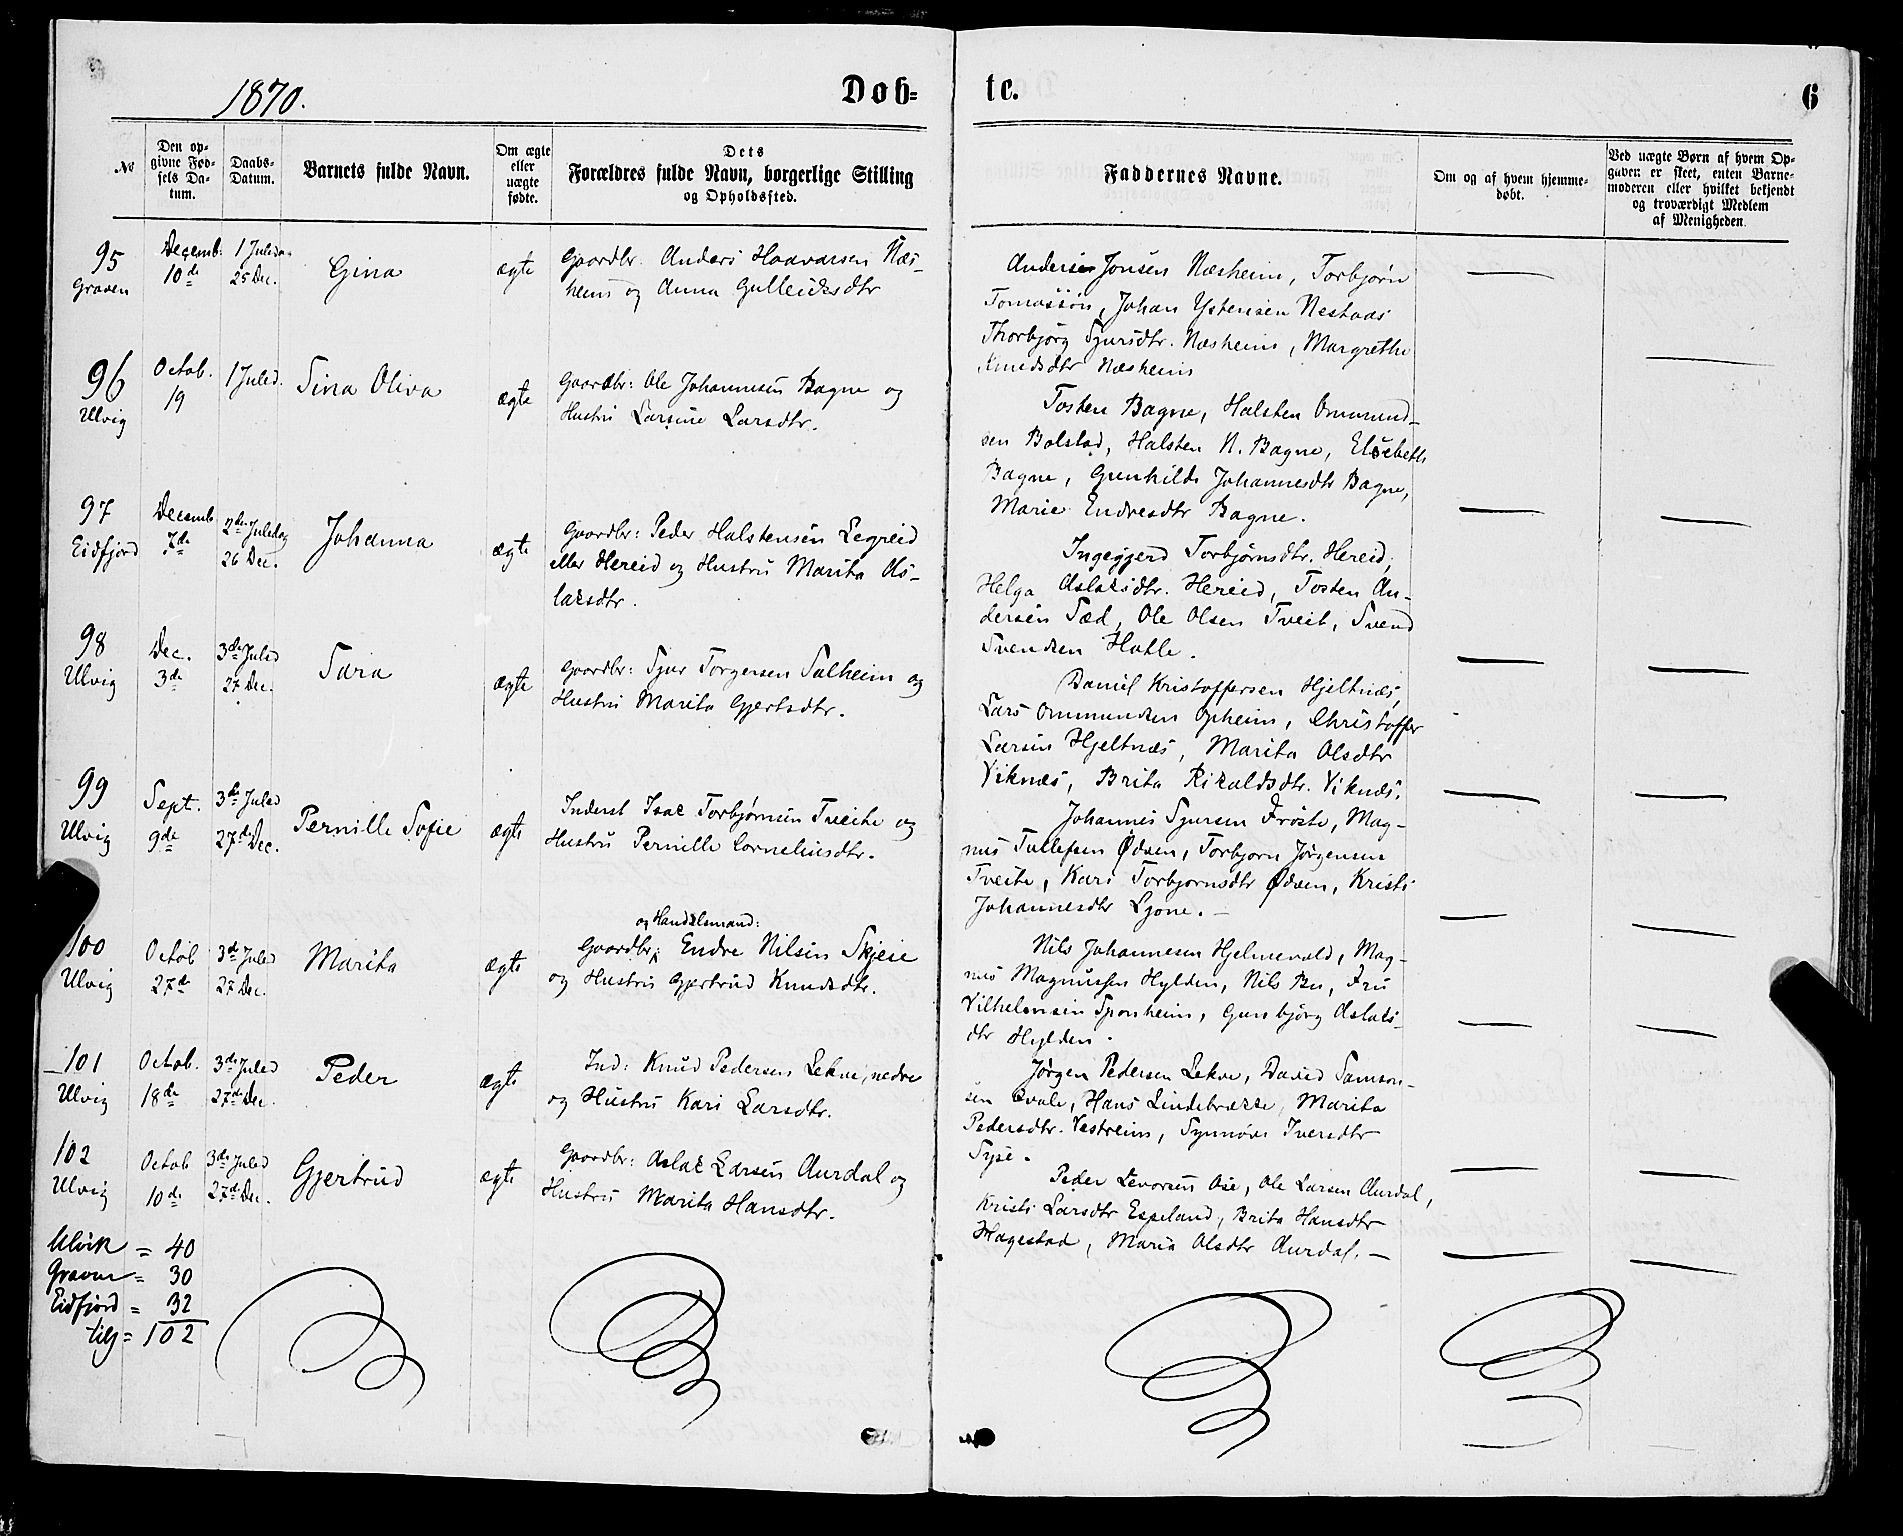 1870.
Døb-
te.
6
№
Den op-
givne Fød-
sels Da-
tum.
Daabs-
Datum.
Barnets fulde Navn.
Om ægte
eller
uægte
fødte.
Dets
Forældres fulde Navn, borgerlige Stilling
og Opholdssted.
Faddernes Navne.
Om og af hvem hjemme-
døbt.
Ved uægte Børn af hvem Op-
gaven er skeet, enten Barne-
moderen eller hvilket bekjendt
og troværdigt Medlem
af Menigheden.
95
Graven
Decemb.
10de
1 Juleda
25 Dec.
Gina
ægte
Gaardbr. Anders Haavarsen Næs-
heim og Anna Gulleiksdtr
Anders Jonsen Næsheim, Torbjørn
Tomassøn, Johan Ystensen Nestaas
Thorbjørg Sjursdtr. Næsheim, Margrethe
Knudsdtr Næsheim
96
Ulvig
Octob.
19
1 Juled.
Sina Oliva
ægte
Gaardbr: Ole Johannesen Bagne og
Hustru Larsine Larsdtr.
Tosten Bagne, Halsten Ommund-
sen Bolstad, Halsten N. Bagne, Elsebeth
Bagne, Gunhilde Johannesdtr Bagne,
Marie Endresdtr Bagne.
97
Eidfjord
Decemb
7de
2den Juledag
26 Dec.
Johanna
ægte
Gaardbr: Peder Halstensen Legreid
eller Hereid og Hustru Marita As-
laksdtr.
Ingegjerd Torbjørnsdtr. Hereid,
Helga Aslaksdtr. Hereid, Tosten An-
dersen Sæd, Ole Olsen Tveit, Svend
Svendsen Hatle.
98
Ulvig
Dec.
3de
3de Juled
27 Dec.
Sara
ægte
Gaardbr: Sjur Torgersen Salheim og
Hustru Marita Gjertsdtr.
Daniel Kristoffersen Hjeltnæs,
Lars Ommundsen Opheim, Christoffer
Larsen Hjeltnæs, Marita Olsdtr
Viknæs, Brita Rikoldsdtr. Viknæs.
99
Ulvig
Sept.
9de
3de Juled
27de Dec.
Pernille Sofie
ægte
Inderst Isak Torbjørnsen Tveite og
Hustru Pernille Corneliusdtr.
Johannes Sjursen Frøste, Mag-
nus Tollefsen Ødven, Torbjorn Jørgensen
Tveite, Kari Torbjornsdtr Ødven, Kristi
Johannesdtr Lyone.
100
Ulvig
Octob
27de
3de Juled
27 Dec.
Marita
ægte
og Handelsmand:
Gaardbr; Endre Nilsen Skjeie
og Hustru Gjertrud Knudsdtr.
Nils Johannesen Hjelmevold, Mag-
nus Magnussen Hylden, Nils Bu, Fru
Vilhelmsen Sponheim, Gunbjørg Aslaks-
dtr Hylden.
101
Ulvig
Octob.
18de
3de Juled
27de Dec.
Peder
ægte
Ind: Knud Pedersen Lekve, nedre
og Hustru Kari Larsdtr.
Jørgen Pedersen Lekve, David Samson-
sen Qvale, Hans Lindebrække, Marita
Pedersdtr. Vestreim, Synnøve Iversdtr
Syse.
102
Ulvig
Octob
10de
3de Juled
27de Dec.
Gjertrud
ægte
Gaardbr: Aslak Larsen Aurdal og
Hustru Marita Hansdtr.
Peder Levorsen Ose, Ole Larsen Aurdal,
Kristi Larsdtr Espeland, Brita Hansdtr
Hagestad, Maria Olsdtr Aurdal.
Ulvik = 40
Graven = 30
Eidfjord = 32
tils = 102